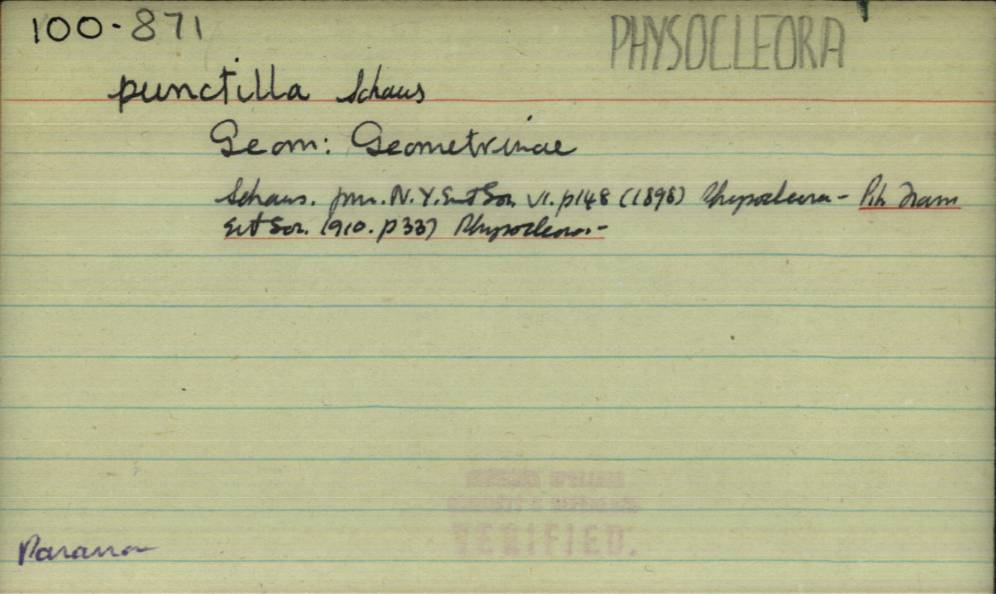 100-871
PHYSOCLEORA
punctilla Schaus
Geom: Geometrinae
Schaus. Jrn. N.Y. Ent Soc. VI. p148 (1898) - Trans
Ent Soc. 1910. p337 Physocleora -
VERIFIED.
Parana